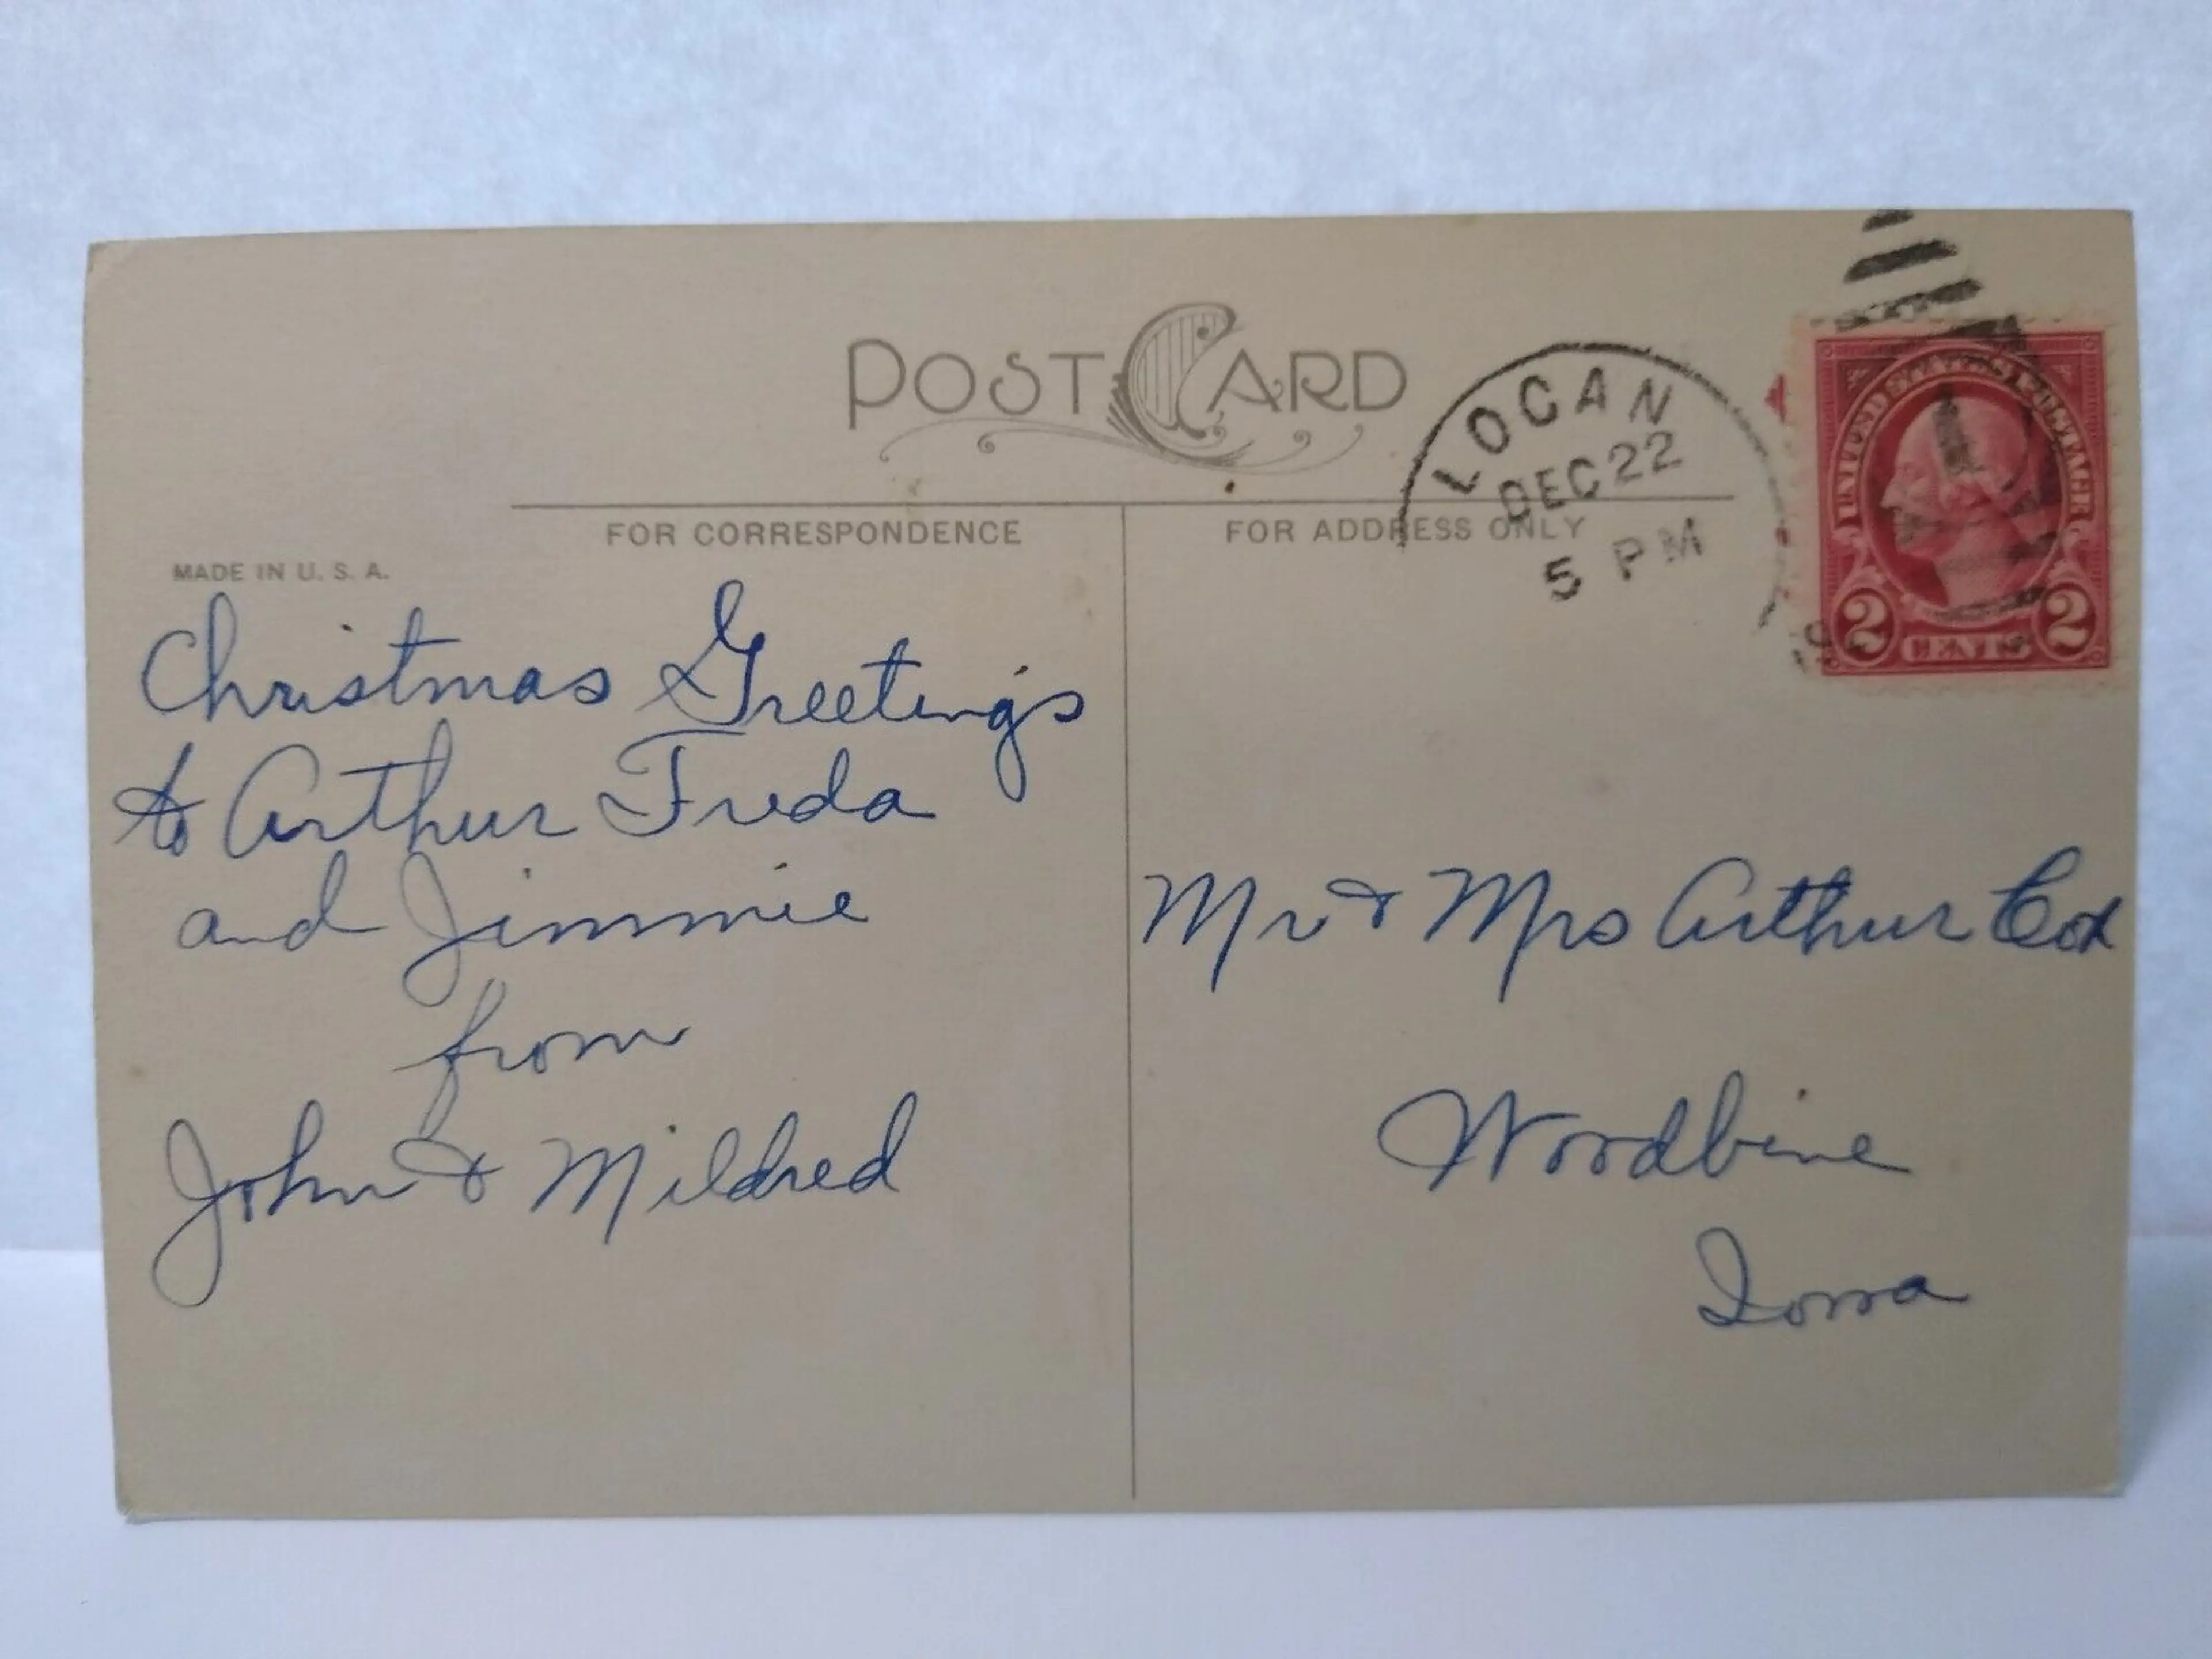 POST CARD
LOGAN
DEC 22
5 PM
UNITED STATES POSTAGE
2 CENTS 2
FOR CORRESPONDENCE
FOR ADDRESS ONLY
MADE IN U. S. A.
Christmas Greetings
to Arthur Freda
and Jimmie
from
John & Mildred
Mr & Mrs Arthur Cox
Woodbine
Iowa